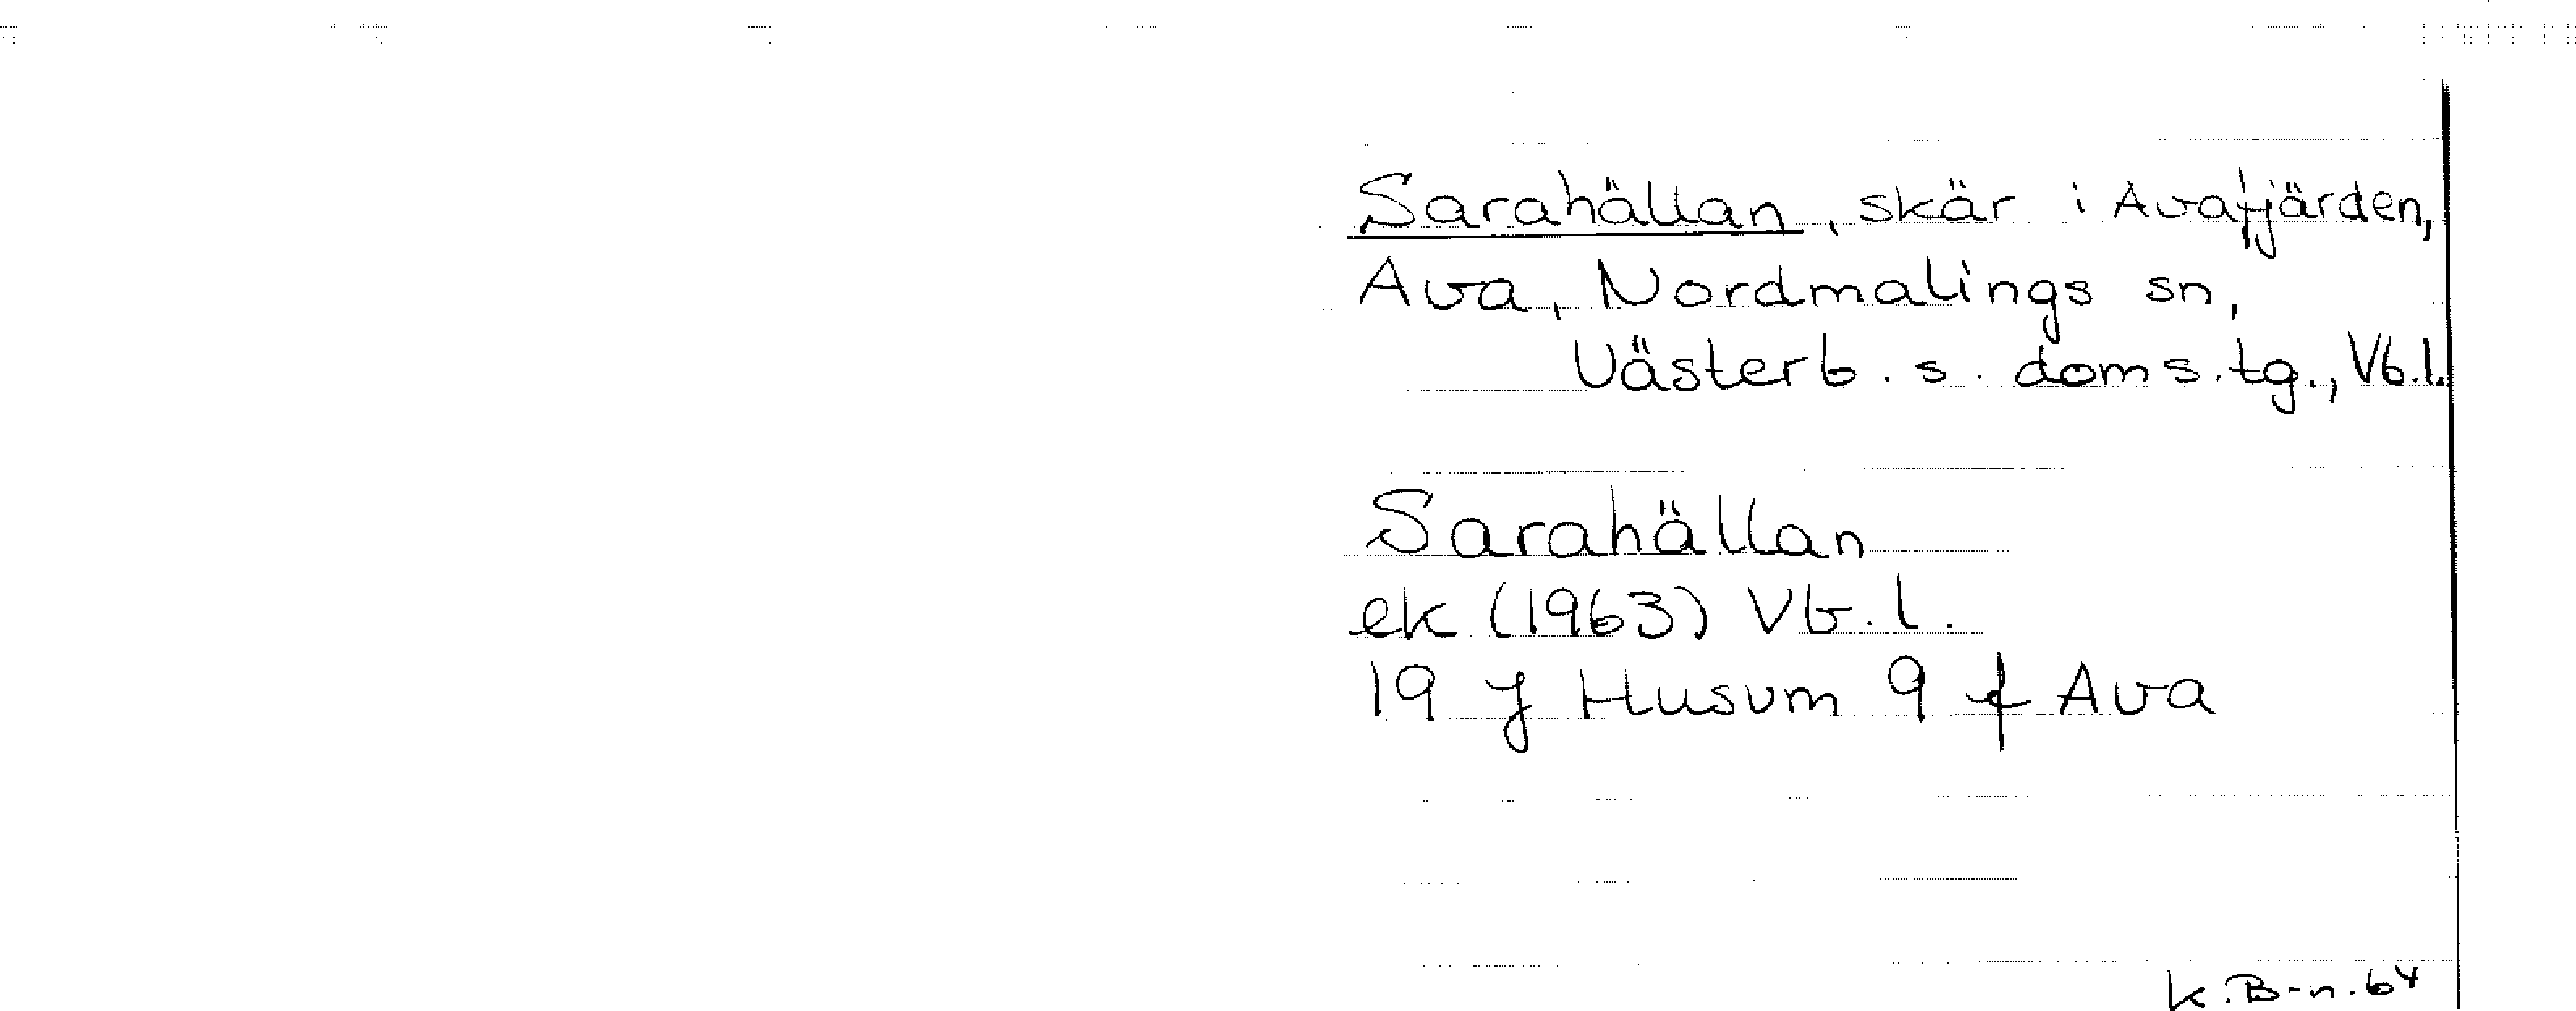 Sarahällan, skär i Avafjärden,
Ava, Nordmalings sn,
Västerb. s. doms.tg., Vb.l.
Sarahällan
ek (1963) Vb.l.
19 J Husum 9 f Ava
K.B-n.64